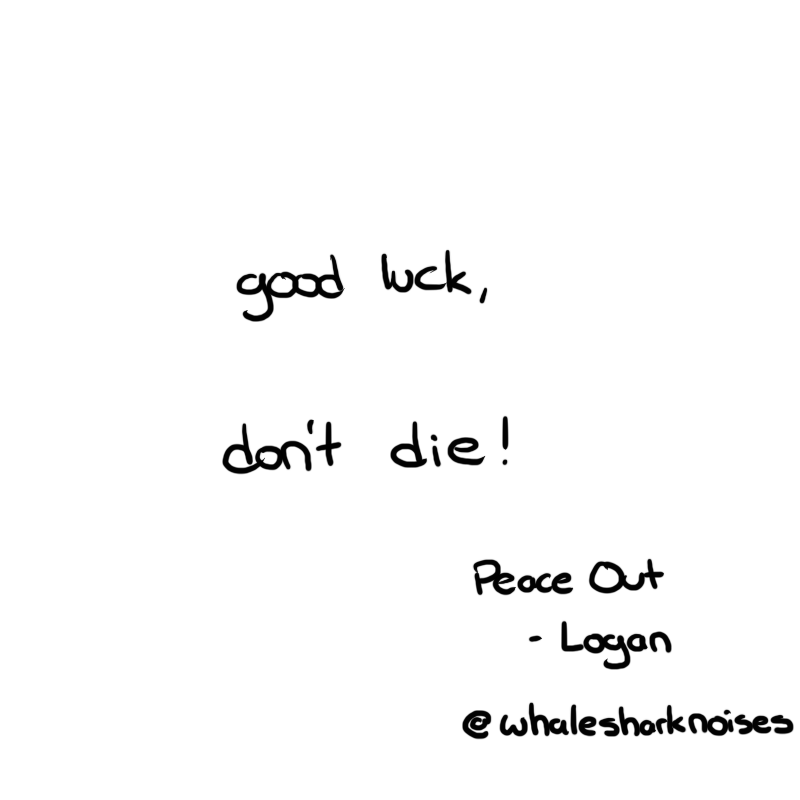 good luck,
don't die!
Peace Out
- Logan
@whalesharknoises